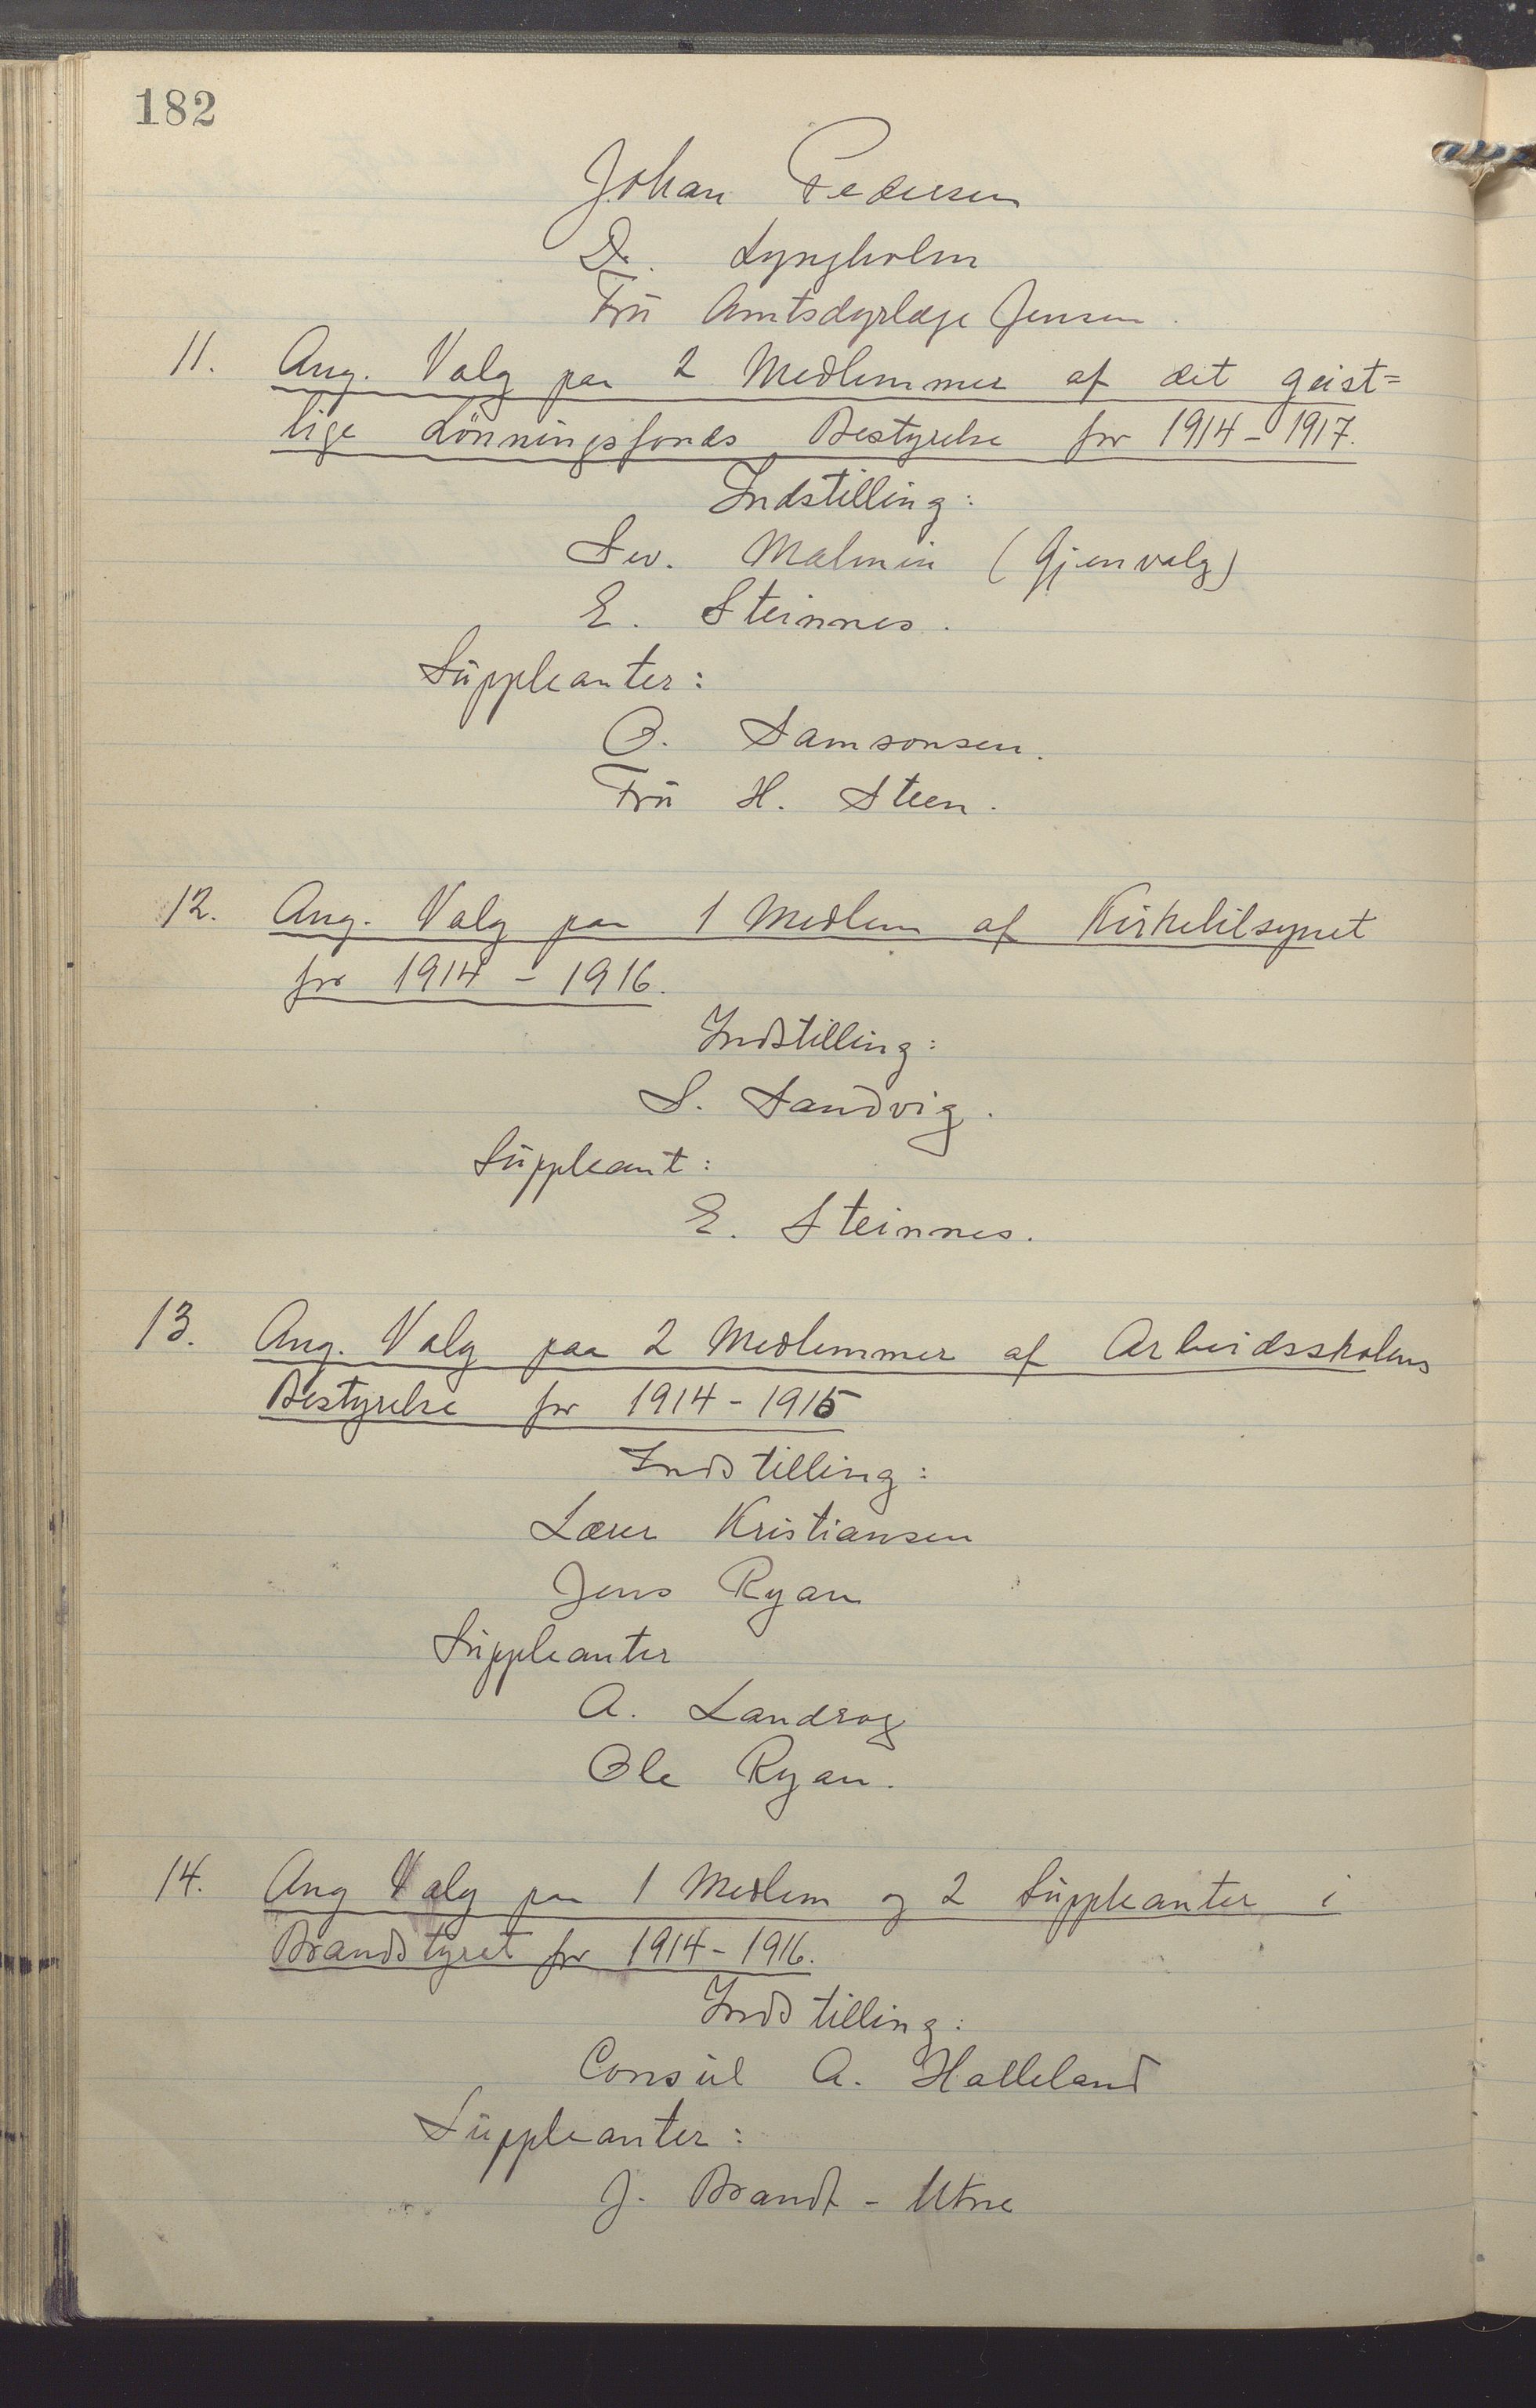 182
Johan Pedersen
D. Lyngholm
Fru Amtsdyrlæge Jensen.
11. Ang. Valg paa 2 Medlemmer af det geist=
lige Lönningsfonds Bestyrelse for 1914-1917.
Indstilling:
Sev. Malmin (Gjenvalg)
E. Steinnes.
Suppleanter:
O. Samsonsen.
Fru H. Steen.
12. Ang. Valg paa 1 Medlem af Kirketilsynet
for 1914-1916.
Indstilling:
S. Sandvig.
Suppleant:
E. Steinnes.
13. Ang. Valg paa 2 Medlemmer af Arbeidsskolens
Bestyrelse for 1914-1915
Indstilling:
Lærer Kristiansen
Jens Ryan
Suppleanter
A. Landrog
Ole Ryan.
14. Ang Valg paa 1 Medlem og 2 Suppleanter i
Brandstyret for 1914-1916.
Indstilling:
Consul A. Halleland
Suppleanter:
J. Brandt-Utne